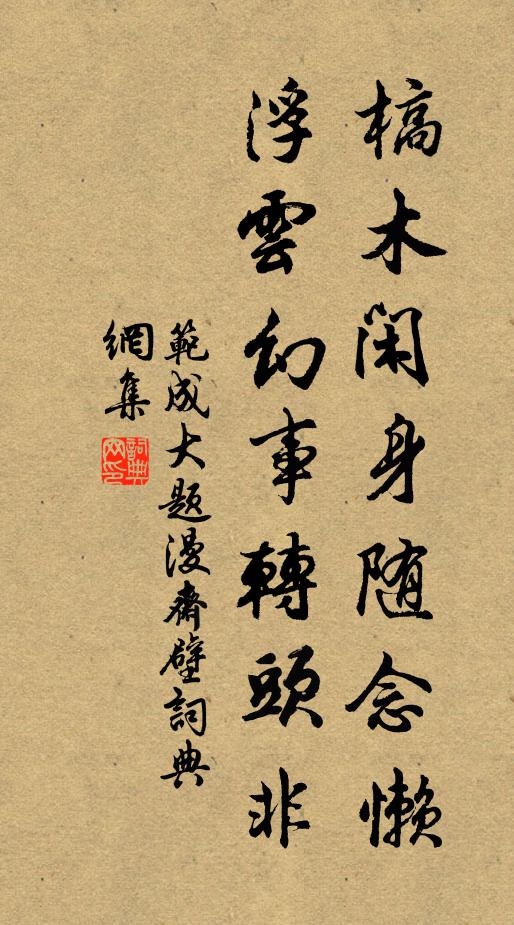 槁木閑身隨念懶
浮雲幻事轉頭非
範成大題漫齋壁詞典
網集
詞典网印